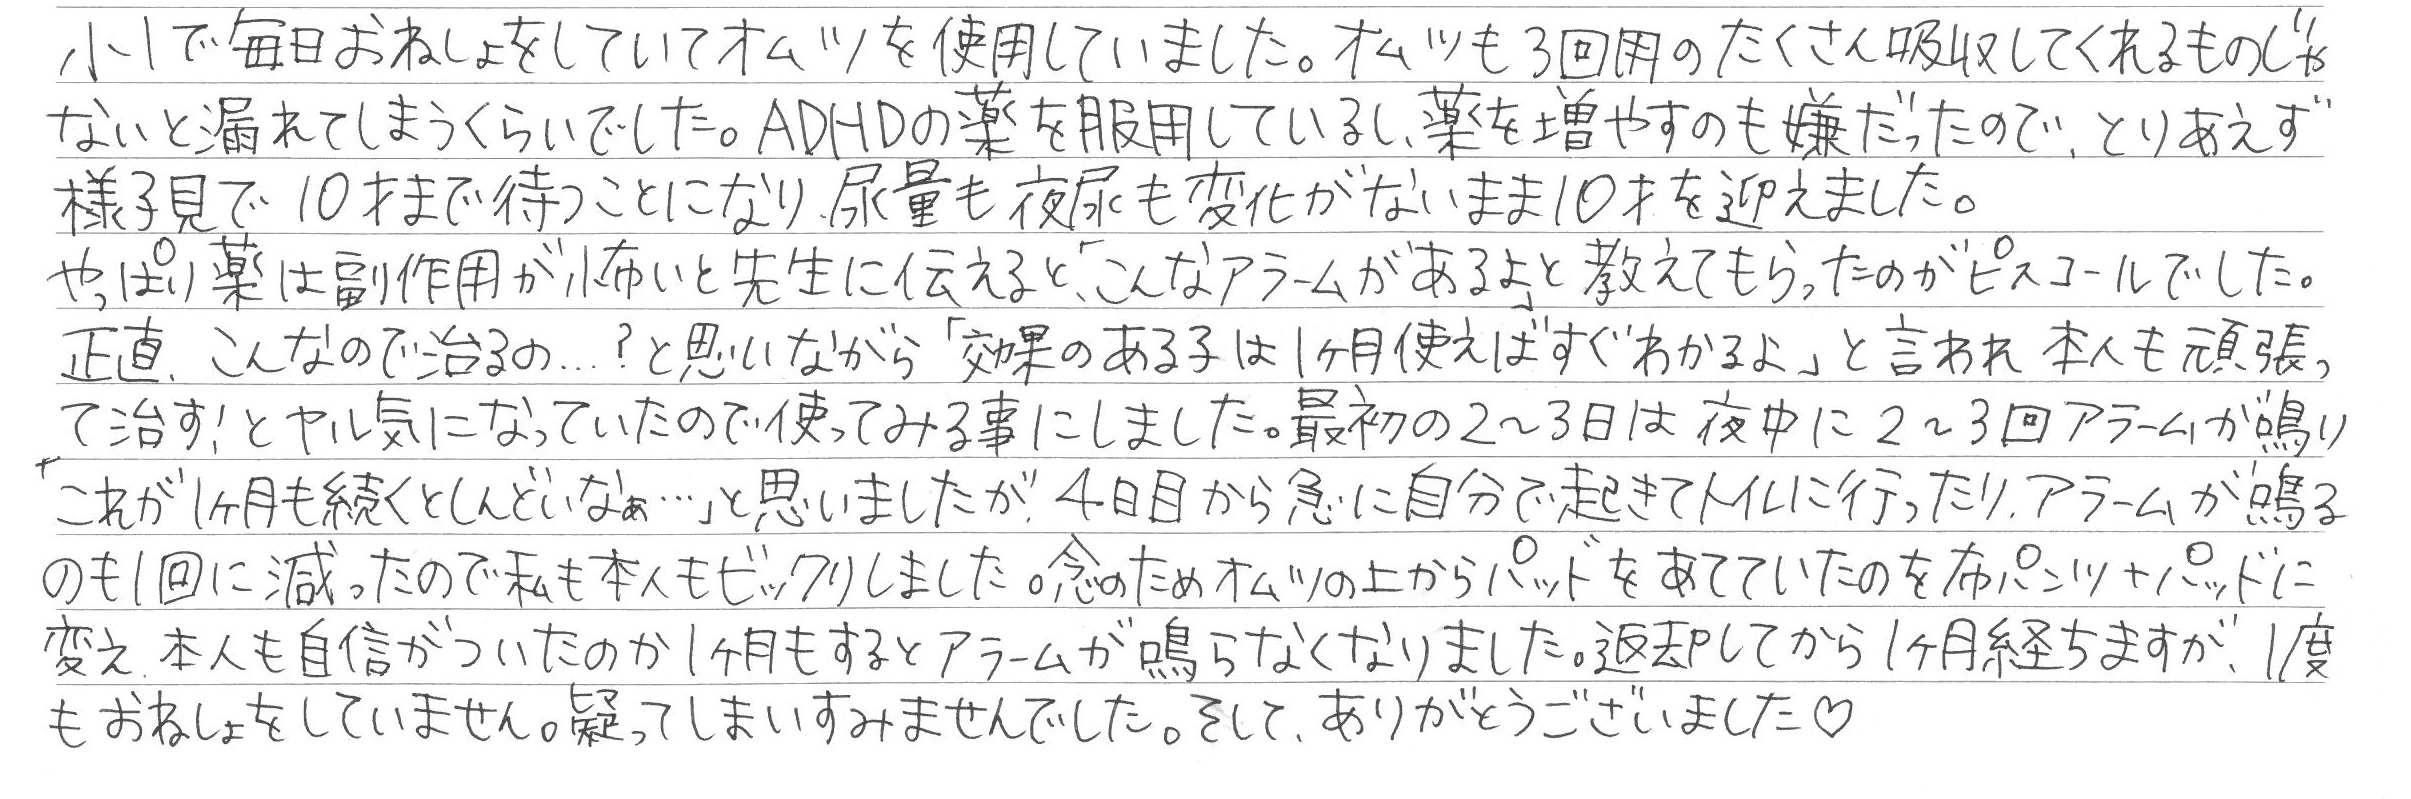 小1で毎日おねしょをしていてオムツを使用していました。オムツも3回用のたくさん吸収してくれるものじゃ
ないと漏れてしまうくらいでした。ADHDの薬を服用しているし、薬を増やすのも嫌だったので、とりあえず
様子見で10才まで待つことになり、尿量も夜尿も変化がないまま10才を迎えました。
やっぱり薬は副作用が怖いと先生に伝えると、「こんなアラームがあるよ」と教えてもらったのがピスコールでした。
正直、こんなので治るの…?と思いながら「効果のある子は1ヶ月使えばすぐわかるよ」と言われ本人も頑張っ
て治す!とヤル気になっていたので使ってみる事にしました。最初の2~3日は夜中に2~3回アラームが鳴り
「これが1ヶ月も続くとしんどいなぁ…」と思いましたが、4日目から急に自分で起きてトイレに行ったり、アラームが鳴る
のも1回に減ったので私も本人もビックリしました。念のためオムツの上からパッドをあてていたのを布パンツ+パッドに
変え、本人も自信がついたのか1ヶ月もするとアラームが鳴らなくなりました。返却してから1ヶ月経ちますが、1度
もおねしょをしていません。疑ってしまいすみませんでした。そして、ありがとうございました♡